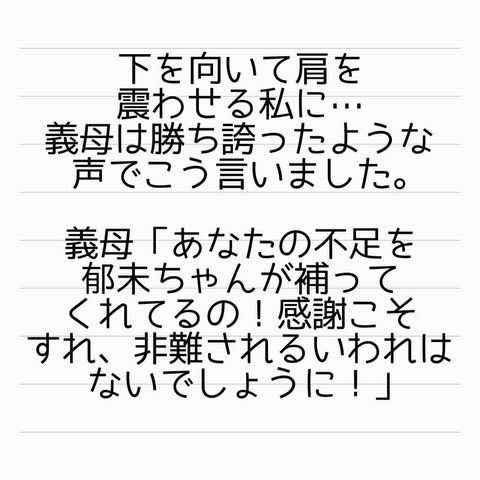 下を向いて肩を
震わせる私に…
義母は勝ち誇ったような
声でこう言いました。
義母「あなたの不足を
郁未ちゃんが補って
くれてるの！感謝こそ
すれ、非難されるいわれは
ないでしょうに！」